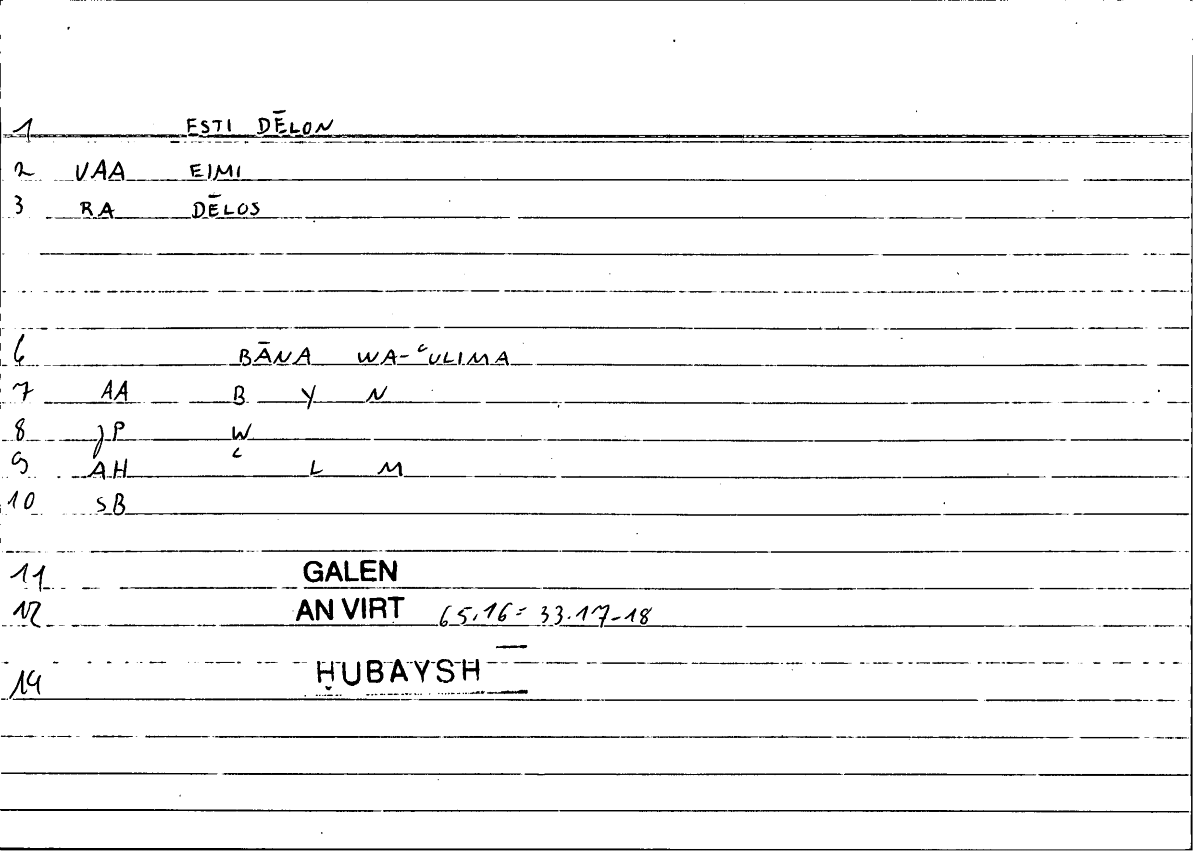 1 ESTI DĒLON
2 VAA EIMI
3 RA DĒLOS
6 BĀNA WA-ʿULIMA
7 AA B Y N
8 JP W
9 AH ʿ L M
10 SB
11 GALEN
12 AN VIRT 65.16 = 33.17-18
14 ḤUBAYSH